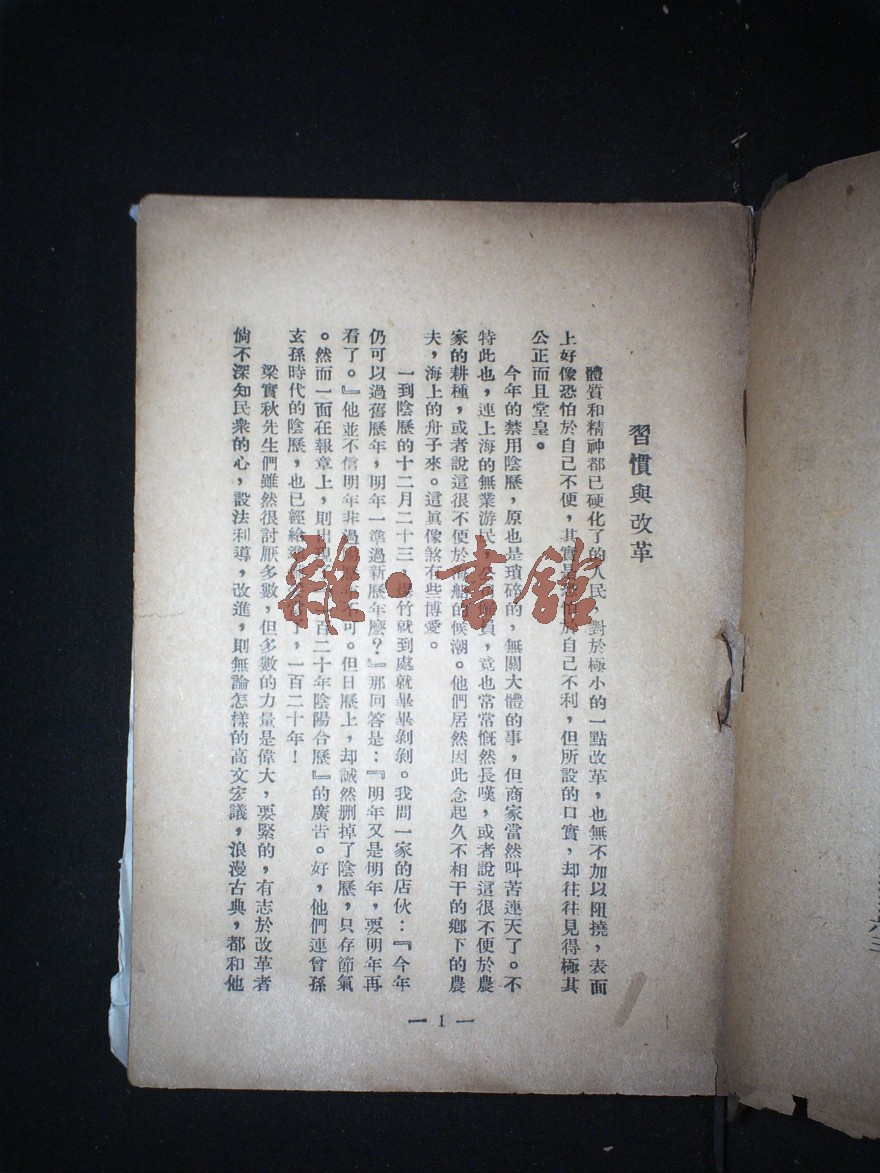 習慣與改革
體質和精神都已硬化了的人民，對於極小的一點改革，也無不加以阻撓，表面
上好像恐怕於自己不便，其實是恐怕於自己不利，但所設的口實，却往往見得極其
公正而且堂皇。
今年的禁用陰歷，原也是瑣碎的，無關大體的事，但商家當然叫苦連天了。不
特此也，連上海的無業游民，員，竟也常常慨然長嘆，或者說這很不便於農
家的耕種，或者說這很不便於海船的候潮。他們居然因此念起久不相干的鄉下的農
夫，海上的舟子來。這眞像煞有些博愛。
一到陰歷的十二月二十三，爆竹就到處就畢畢剝剝。我問一家的店伙：『今年
仍可以過舊歷年，明年一準過新歷年麼？』那回答是：『明年又是明年，要明年再
看了。』他並不信明年非過年不可。但日歷上，却誠然刪掉了陰歷，只存節氣
。然而一面在報章上，則出現百二十年陰陽合歷』的廣告。好，他們連曾孫
玄孫時代的陰歷，也已經給了，一百二十年！
梁實秋先生們雖然很討厭多數，但多數的力量是偉大，要緊的，有志於改革者
倘不深知民衆的心，設法利導，改進，則無論怎樣的高文宏議，浪漫古典，都和他
— 1 —
雜·書館